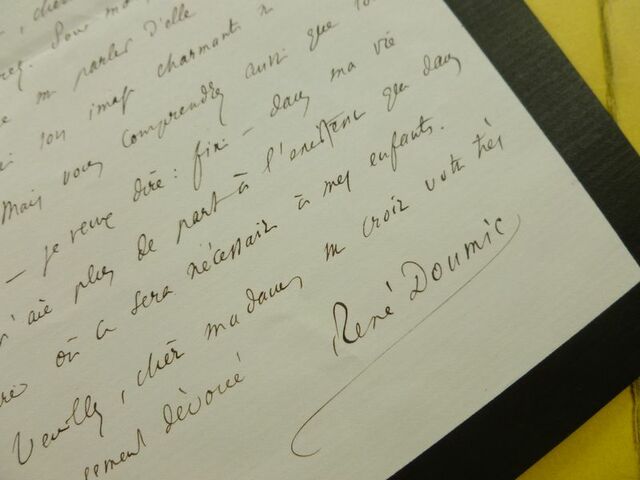 , chè
rez. Pour mo
me parler d'elle
ai son imag charmante a
Mais vous comprendrez aussi que to
— je veux dire : fini — dans ma vie
n'aie plus de part à l'existence que dans
où ce sera nécessaire à mes enfants.
Veuillez, chère madame, me croire votre très
sement dévoué
René Doumic